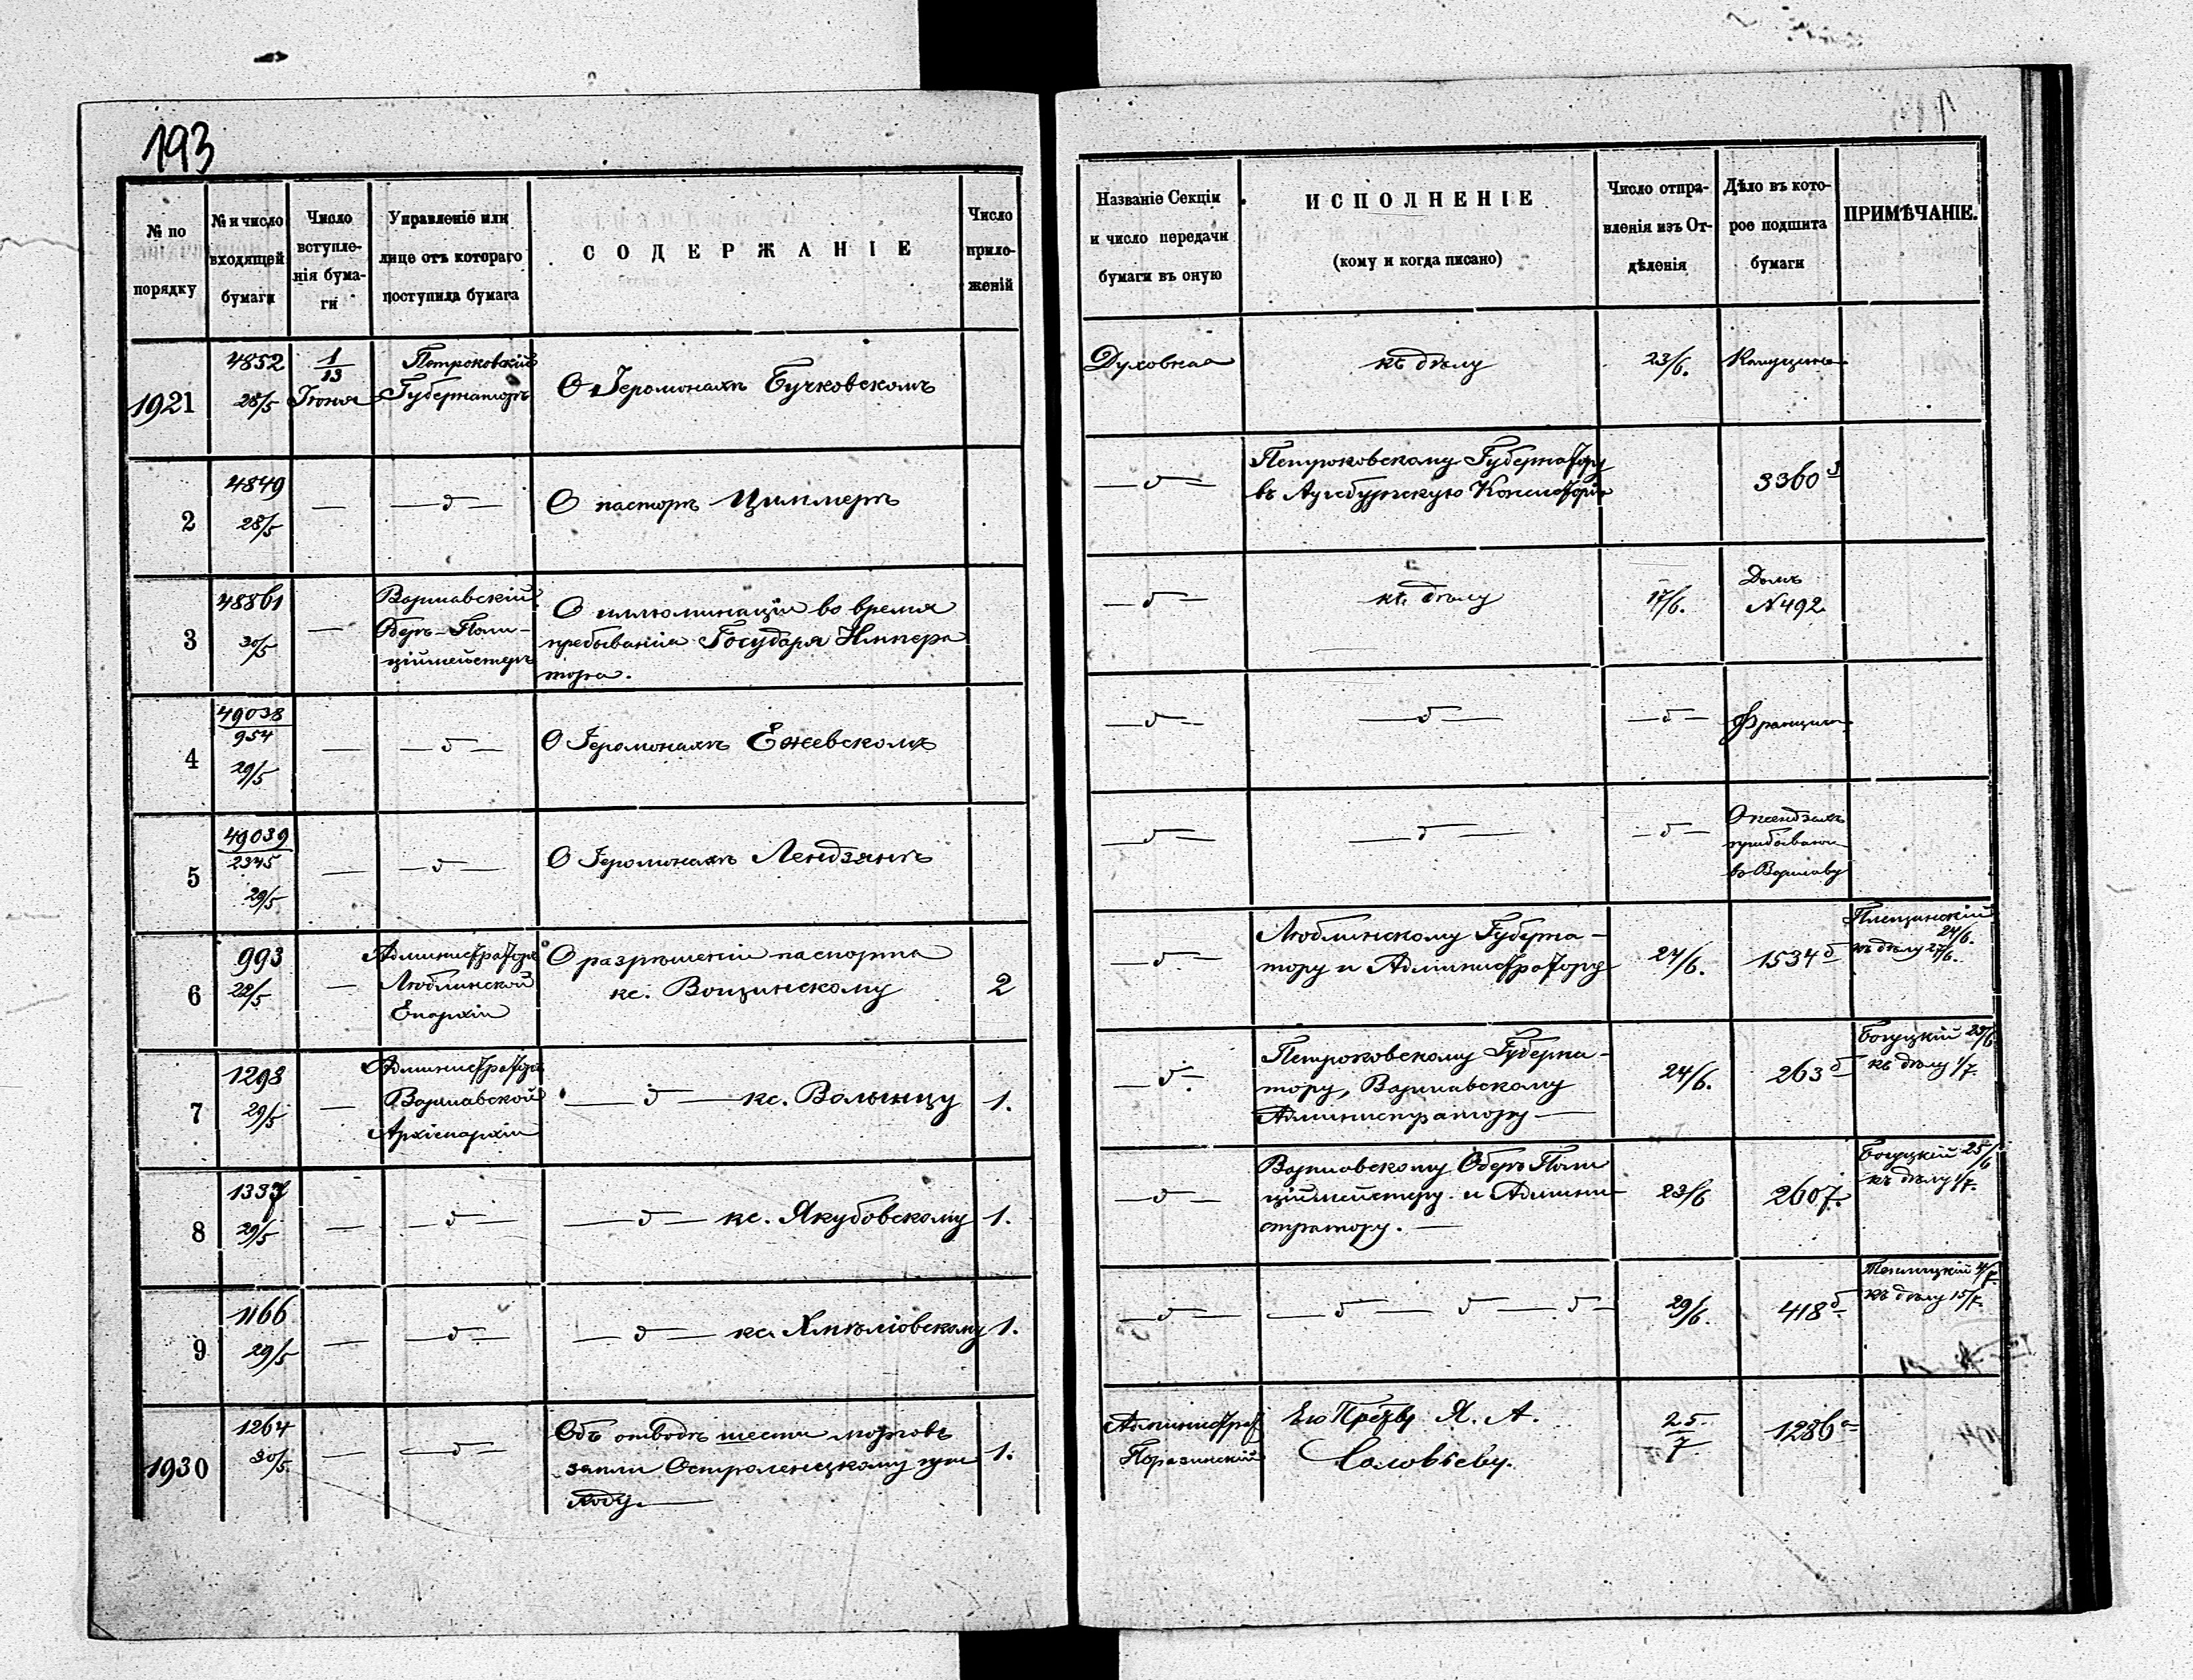 193
№ по порядку
№ и число входящей бумаги
Число вступле-
нія бума-
ги
Управленіе или
лице отъ котораго
поступила бумага
СОДЕРЖАНІЕ
Число
прило-
женій
Названіе Секціи
и число передачи
бумаги въ оную
ИСПОЛНЕНІЕ
(кому и когда писано)
Число отпра-
вленія изъ От-
дѣленія
Дѣло въ кото-
рое подшита
бумаги
ПРИМѢЧАНІЕ.
1921
4852
28/5
1/13
Іюня
Петроковскій
Губернаторъ
О Іеромонахѣ Бучковскомъ
Духовная
къ дѣлу
23/6.
2
4849
28/5
— —δ—
О пасторѣ Циммерѣ
—δ—
Петроковскому Губернатору
въ Аугсбургскую Консисторію
3360
3
48861
30/5
—
Варшавскій
Оберъ-Поли-
ціймейстеръ
О иллюминаціи во время
пребыванія Государя Импера
тора.
—δ—
къ дѣлу
17/6.
Домъ
N 492
4
49038
954
29/5
— —δ—
О Іеромонахѣ Ежевскомъ
—δ— —δ— —δ—
5
49039
2345
29/5
— —δ—
О Іеромонахѣ Лендзянѣ
—δ— —δ— —δ—
О ксендзахъ
въ Варшаву
6
993
22/5
—
Администратора
Люблинской
Епархіи
О разрѣшеніи паспорта
кс. Вощинскому
2
—δ—
Люблинскому Губерна-
тору и Администратору
24/6.
1534 б
24/6.
къ дѣлу 27/6.
7
1298
29/5
—
Администратора
Варшавской
Архіепархіи
—δ— кс. Волынцу
1.
—δ—
Петроковскому Губерна-
тору, Варшавскому
Администратору —
24/6.
263 б
Богуцкій 29/6
къ дѣлу 1/7.
8
1337
29/5
— —δ—
—δ— кс. Якубовскому
1.
—δ—
Варшавскому Оберъ Поли
ціймейстеру и Админи-
стратору. —
23/6
2607.
Богуцкій 25/6
къ дѣлу 1/7.
9
1166
29/5
— —δ—
—δ— кс. Хмѣліовскому
1.
—δ—
—δ— δ—δ—
29/6.
418 б
къ дѣлу 15/7.
1930
1264
30/5.
— —δ—
Объ отводѣ шести морговъ
земли Остроленцкому при
ходу. —
1.
Администрат
Поразинскій
Его Презву Я. А.
Соловьеву.
25/7
1286 а